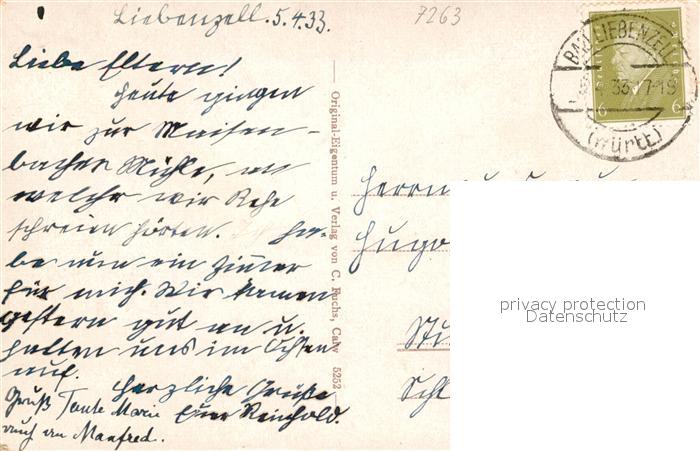 Liebenzell. 5.4.33.
7263
Liebe Eltern!
Heute gingen
wir zur Maisen-
bacher Mühle, an
welcher wir Rehe
schreien hörten. Ha-
be nun ein Zimmer
für mich. Wir kamen
gestern gut an u.
halten uns im Ochsen
auf.
Herzliche Grüße
Euer Reinhold.
Gruß Tante Marie
auch an Manfred.
Original-Eigentum u. Verlag von C. Fuchs, Calw 5252
BAD LIEBENZELL
33 17-18
(Württ)
6 6
Herrn
Hugo
Stu
Schl
privacy protection
Datenschutz